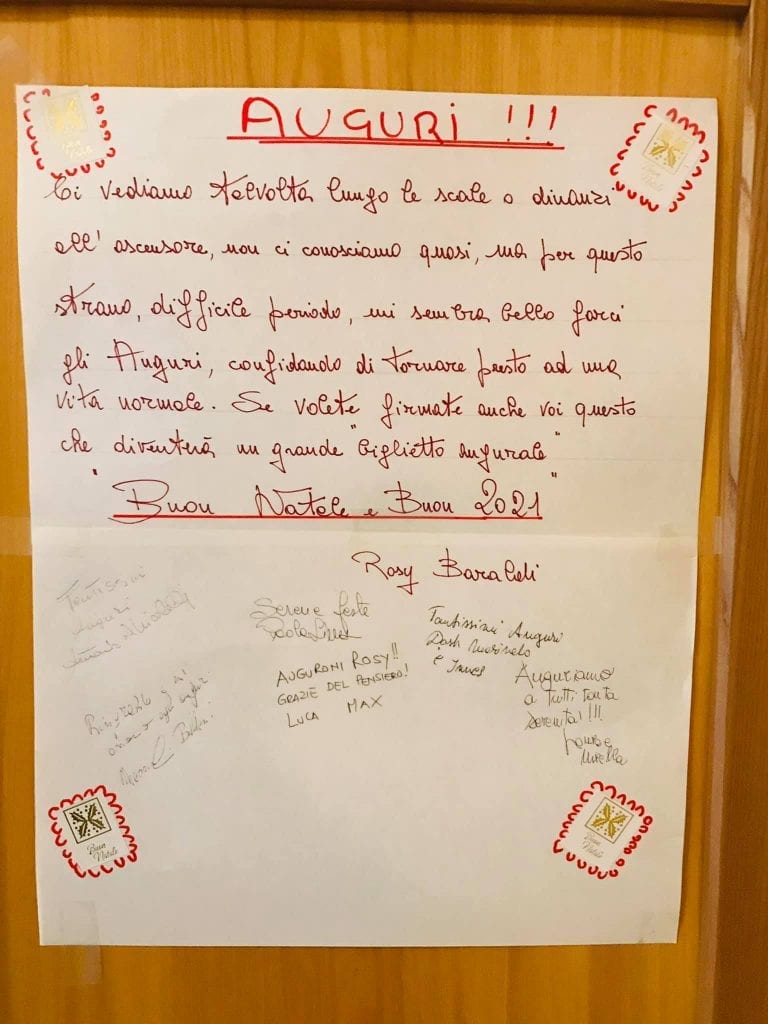 AUGURI !!!
Ci vediamo talvolta lungo le scale o dinanzi
all' ascensore, non ci conosciamo quasi, ma per questo
strano, difficile periodo, mi sembra bello farci
gli Auguri, confidando di tornare presto ad una
vita normale. Se volete firmate anche voi questo
che diventerà un grande "biglietto augurale"
"Buon Natale e Buon 2021"
Rosy Baraldi
Tantissimi
Auguri
Serene feste
Paola
AUGURONI ROSY!!
GRAZIE DEL PENSIERO!
LUCA MAX
Tantissimi Auguri
Auguriamo
a tutti tanta
serenità!!!
Mirella
Buon
Natale
Buon
Natale
Buon
Natale